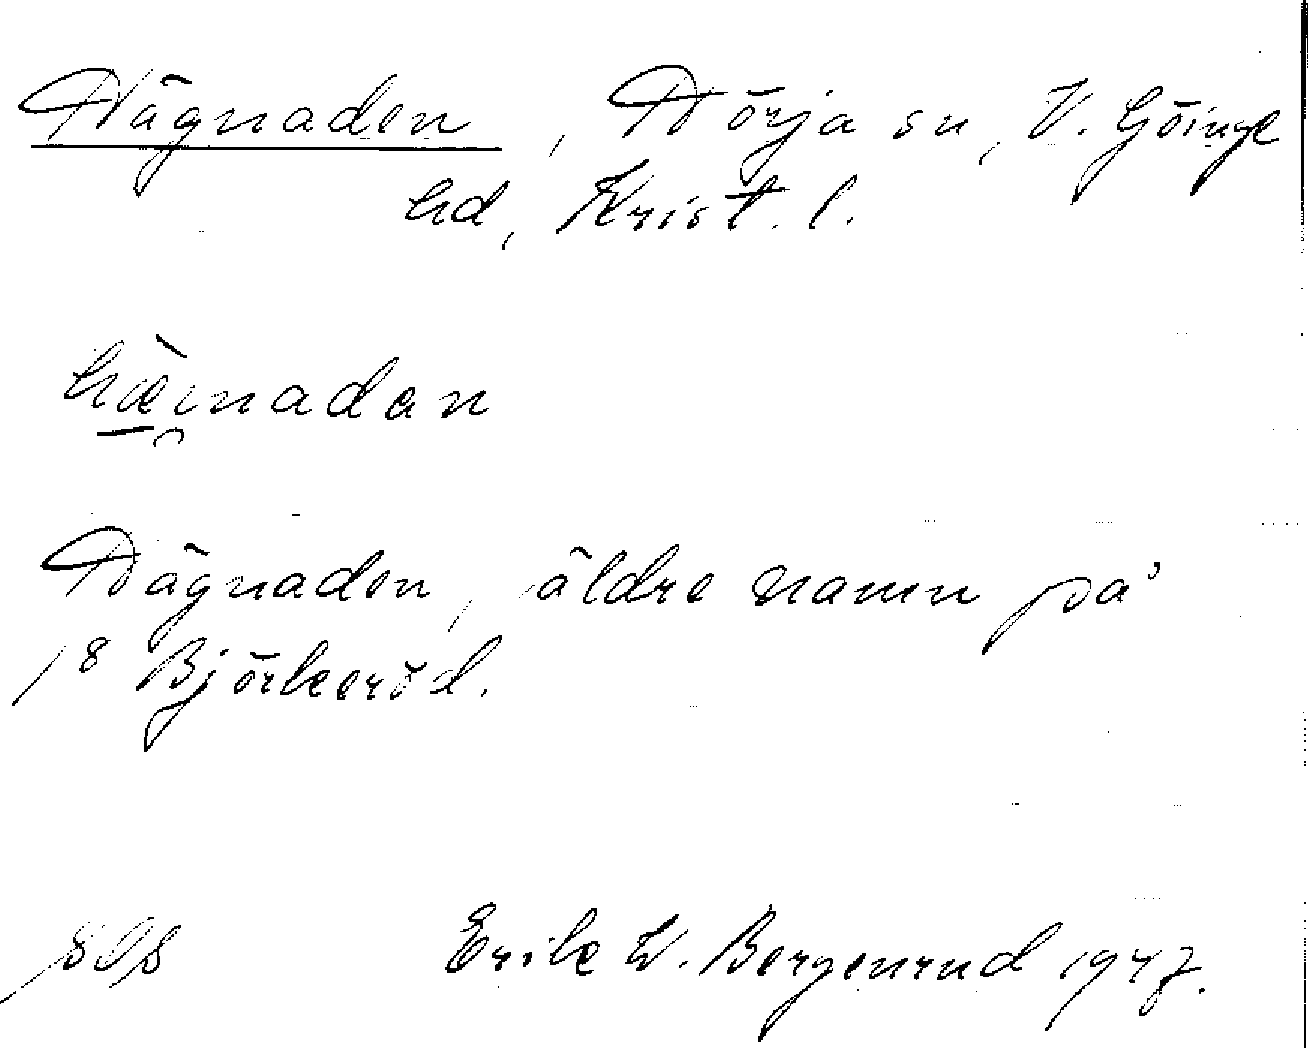 Hägnaden, Hörja sn, V. Göinge
hd, Krist. l.
hæ̀i̯nadan
Hägnaden, äldre namn på
1⁸ Björkeröd.
Erik W. Bergenrud 1947.